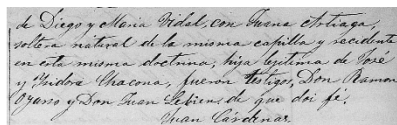 de Diego y Maria Vidal, con Juana Artiaga,
soltera natural de la misma capilla y recidente
en esta misma doctrina, hija legitima de José
y Ysidora Chacona, fueron testigo, Don Ramon
y Don Juan de que doi fé.
Juan Cárdenas